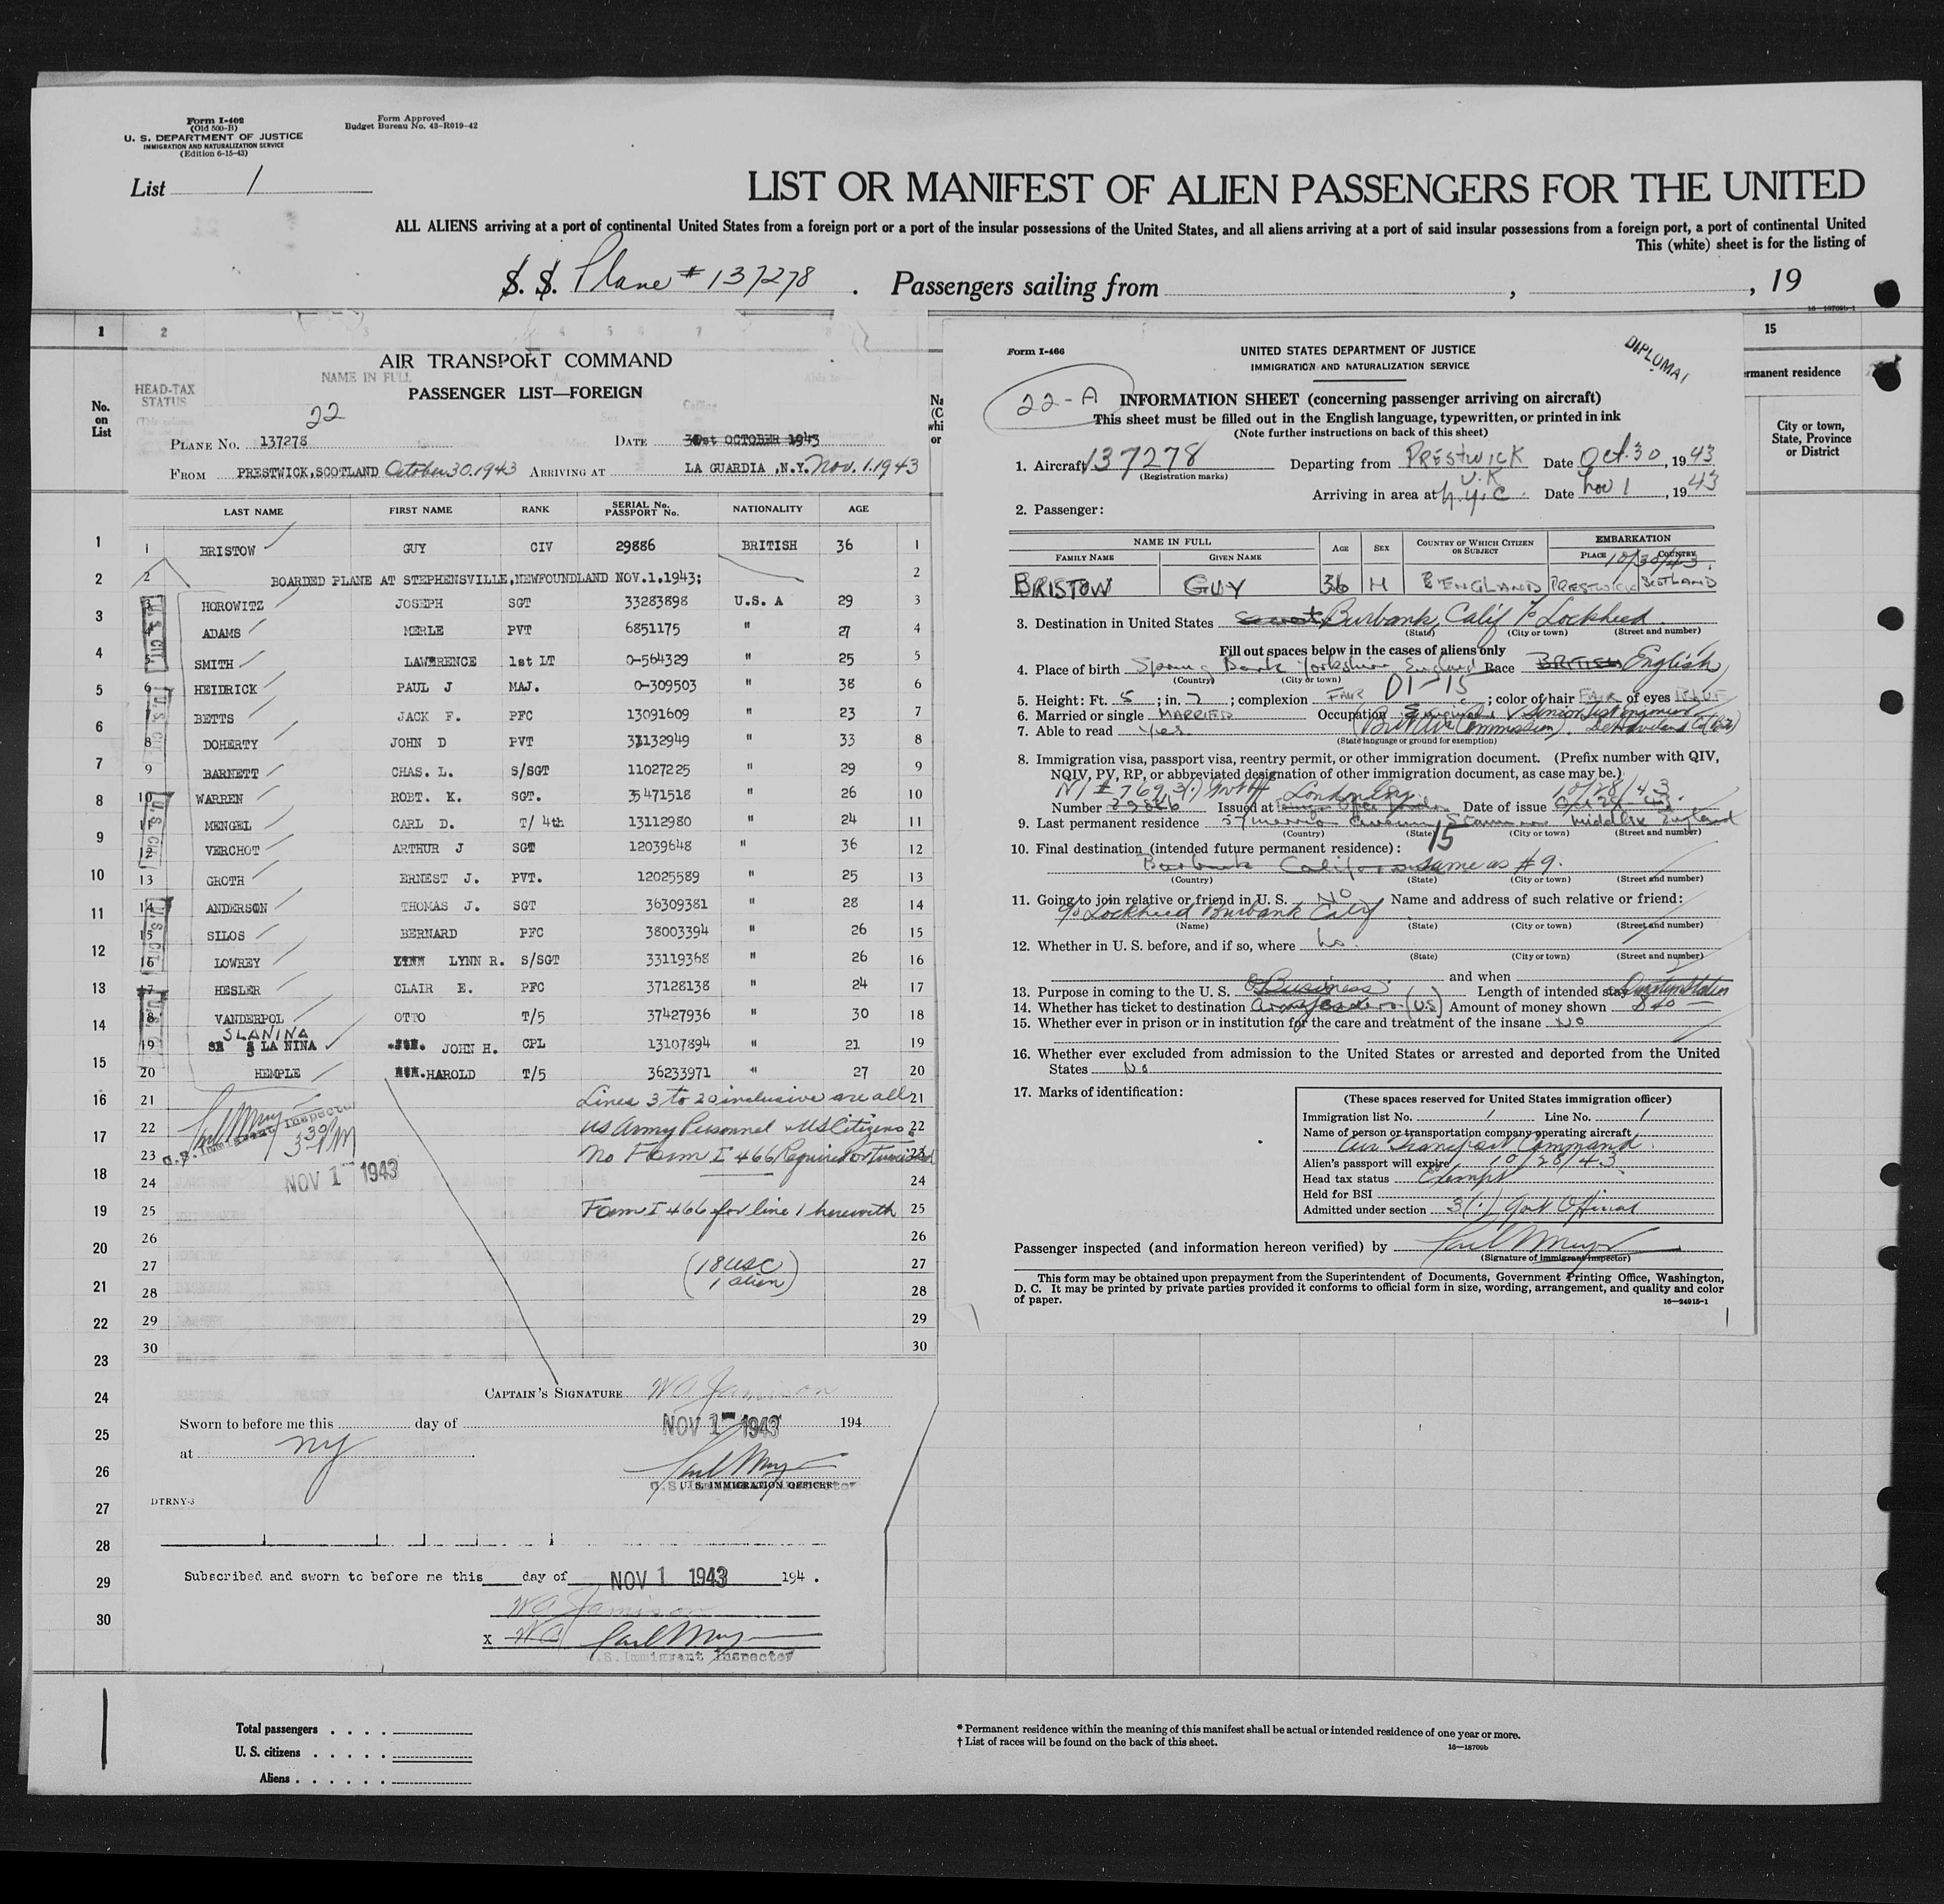 Form I-402
(Old 500-B)
U. S. DEPARTMENT OF JUSTICE
IMMIGRATION AND NATURALIZATION SERVICE
(Edition 6-15-43)
Form Approved
Budget Bureau No. 43-R019-42
List 1
LIST OR MANIFEST OF ALIEN PASSENGERS FOR THE UNITED
ALL ALIENS arriving at a port of continental United States from a foreign port or a port of the insular possessions of the United States, and all aliens arriving at a port of said insular possessions from a foreign port, a port of continental United
This (white) sheet is for the listing of
S. S. Plane # 137278 . Passengers sailing from , , 19
1 2 3 4 5 6 7
HEAD-TAX
STATUS
NAME IN FULL
No.
on
List
AIR TRANSPORT COMMAND
PASSENGER LIST—FOREIGN
22
PLANE NO. 137278 DATE 31st OCTOBER 1943
FROM PRESTWICK, SCOTLAND October 30, 1943 ARRIVING AT LA GUARDIA ,N.Y. Nov. 1. 1943
LAST NAME FIRST NAME RANK SERIAL No. PASSPORT No. NATIONALITY AGE
1 BRISTOW GUY CIV 29886 BRITISH 36 1
2 BOARDED PLANE AT STEPHENSVILLE,NEWFOUNDLAND NOV.1,1943; 2
3 HOROWITZ JOSEPH SGT 33283898 U.S. A 29 3
4 ADAMS MERLE PVT 6851175 " 27 4
5 SMITH LAWRENCE 1st LT 0-564329 " 25 5
6 HEIDRICK PAUL J MAJ. 0-309503 " 38 6
7 BETTS JACK F. PFC 13091609 " 23 7
8 DOHERTY JOHN D PVT 33132949 " 33 8
9 BARNETT CHAS. L. S/SGT 11027225 " 29 9
10 WARREN ROBT. K. SGT. 35471518 " 26 10
11 MENGEL CARL D. T/ 4th 13112980 " 24 11
12 VERCHOT ARTHUR J SGT 12039648 " 36 12
13 GROTH ERNEST J. PVT. 12025589 " 25 13
14 ANDERSON THOMAS J. SGT 36309381 " 28 14
15 SILOS BERNARD PFC 38003394 " 26 15
16 LOWREY LYNN R. S/SGT 33119368 " 26 16
17 HESLER CLAIR E. PFC 37128138 " 24 17
18 VANDERPOL OTTO T/5 37427936 " 30 18
SLANINA
19 LA NINA JOHN H. CPL 13107894 " 21 19
20 HEMPLE HAROLD T/5 36233971 " 27 20
21 Lines 3 to 20 inclusive are all 21
22 US Army Personnel & US Citizens. 22
23 No Form I 466 Required or Furnished 23
U.S. Immigrant Inspector
3 30 PM
NOV 1 1943
24 24
25 Form I 466 for line 1 herewith 25
26 26
27 (18 USC 27
28 1 alien) 28
29 29
30 30
CAPTAIN'S SIGNATURE W A Jamison
Sworn to before me this day of NOV 1 1943 194
at NY
U. S. IMMIGRATION OFFICER
DTRNY-3
Subscribed and sworn to before me this day of NOV 1 1943 194 .
W A Jamison
X WA
U.S. Immigrant Inspector
1
2
3
4
5
6
7
8
9
10
11
12
13
14
15
16
17
18
19
20
21
22
23
24
25
26
27
28
29
30
Total passengers
U. S. citizens
Aliens
Form I-466
UNITED STATES DEPARTMENT OF JUSTICE
IMMIGRATION AND NATURALIZATION SERVICE
DIPLOMAT
22-A
INFORMATION SHEET (concerning passenger arriving on aircraft)
This sheet must be filled out in the English language, typewritten, or printed in ink
(Note further instructions on back of this sheet)
1. Aircraft 137278 Departing from PRESTWICK U.K Date Oct. 30, 1943
(Registration marks)
Arriving in area at N.Y.C. Date Nov 1, 1943
2. Passenger:
NAME IN FULL AGE SEX COUNTRY OF WHICH CITIZEN OR SUBJECT EMBARKATION
FAMILY NAME GIVEN NAME PLACE COUNTRY
10/30/43.
BRISTOW GUY 36 M ENGLAND PRESTWICK SCOTLAND
3. Destination in United States Burbank, Calif % Lockheed
(State) (City or town) (Street and number)
Fill out spaces below in the cases of aliens only
4. Place of birth Spring Bank Yorkshire England Race BRITISH English
(Country) (City or town)
5. Height: Ft. 5; in. 7; complexion FAIR; color of hair FAIR of eyes BLUE
D1-15
6. Married or single MARRIED Occupation Senior Test engineer
7. Able to read Yes. (Brit Air Commission)
(State language or ground for exemption)
8. Immigration visa, passport visa, reentry permit, or other immigration document. (Prefix number with QIV,
NQIV, PV, RP, or abbreviated designation of other immigration document, as case may be.)
London Eng. 10/28/43.
Number 29886 Issued at Date of issue
9. Last permanent residence Middlx England
(Country) (State) (City or town) (Street and number)
15
10. Final destination (intended future permanent residence):
Burbank California same as #9.
(Country) (State) (City or town) (Street and number)
11. Going to join relative or friend in U. S. No Name and address of such relative or friend:
% Lockheed Burbank City
(Name) (State) (City or town) (Street and number)
12. Whether in U. S. before, and if so, where No.
(State) (City or town) (Street and number)
and when
13. Purpose in coming to the U. S. Business Length of intended stay
14. Whether has ticket to destination (US) Amount of money shown
15. Whether ever in prison or in institution for the care and treatment of the insane No
16. Whether ever excluded from admission to the United States or arrested and deported from the United
States No
17. Marks of identification:
(These spaces reserved for United States immigration officer)
Immigration list No. 1 Line No. 1
Name of person or transportation company operating aircraft
Air Transport Command.
Alien's passport will expire 10/28/43.
Head tax status Exempt
Held for BSI
Admitted under section 3(1) Govt Official
Passenger inspected (and information hereon verified) by
(Signature of immigrant inspector)
This form may be obtained upon prepayment from the Superintendent of Documents, Government Printing Office, Washington,
D. C. It may be printed by private parties provided it conforms to official form in size, wording, arrangement, and quality and color
of paper.
16—24915-1
15
rmanent residence
City or town,
State, Province
or District
* Permanent residence within the meaning of this manifest shall be actual or intended residence of one year or more.
† List of races will be found on the back of this sheet.
16—18709b